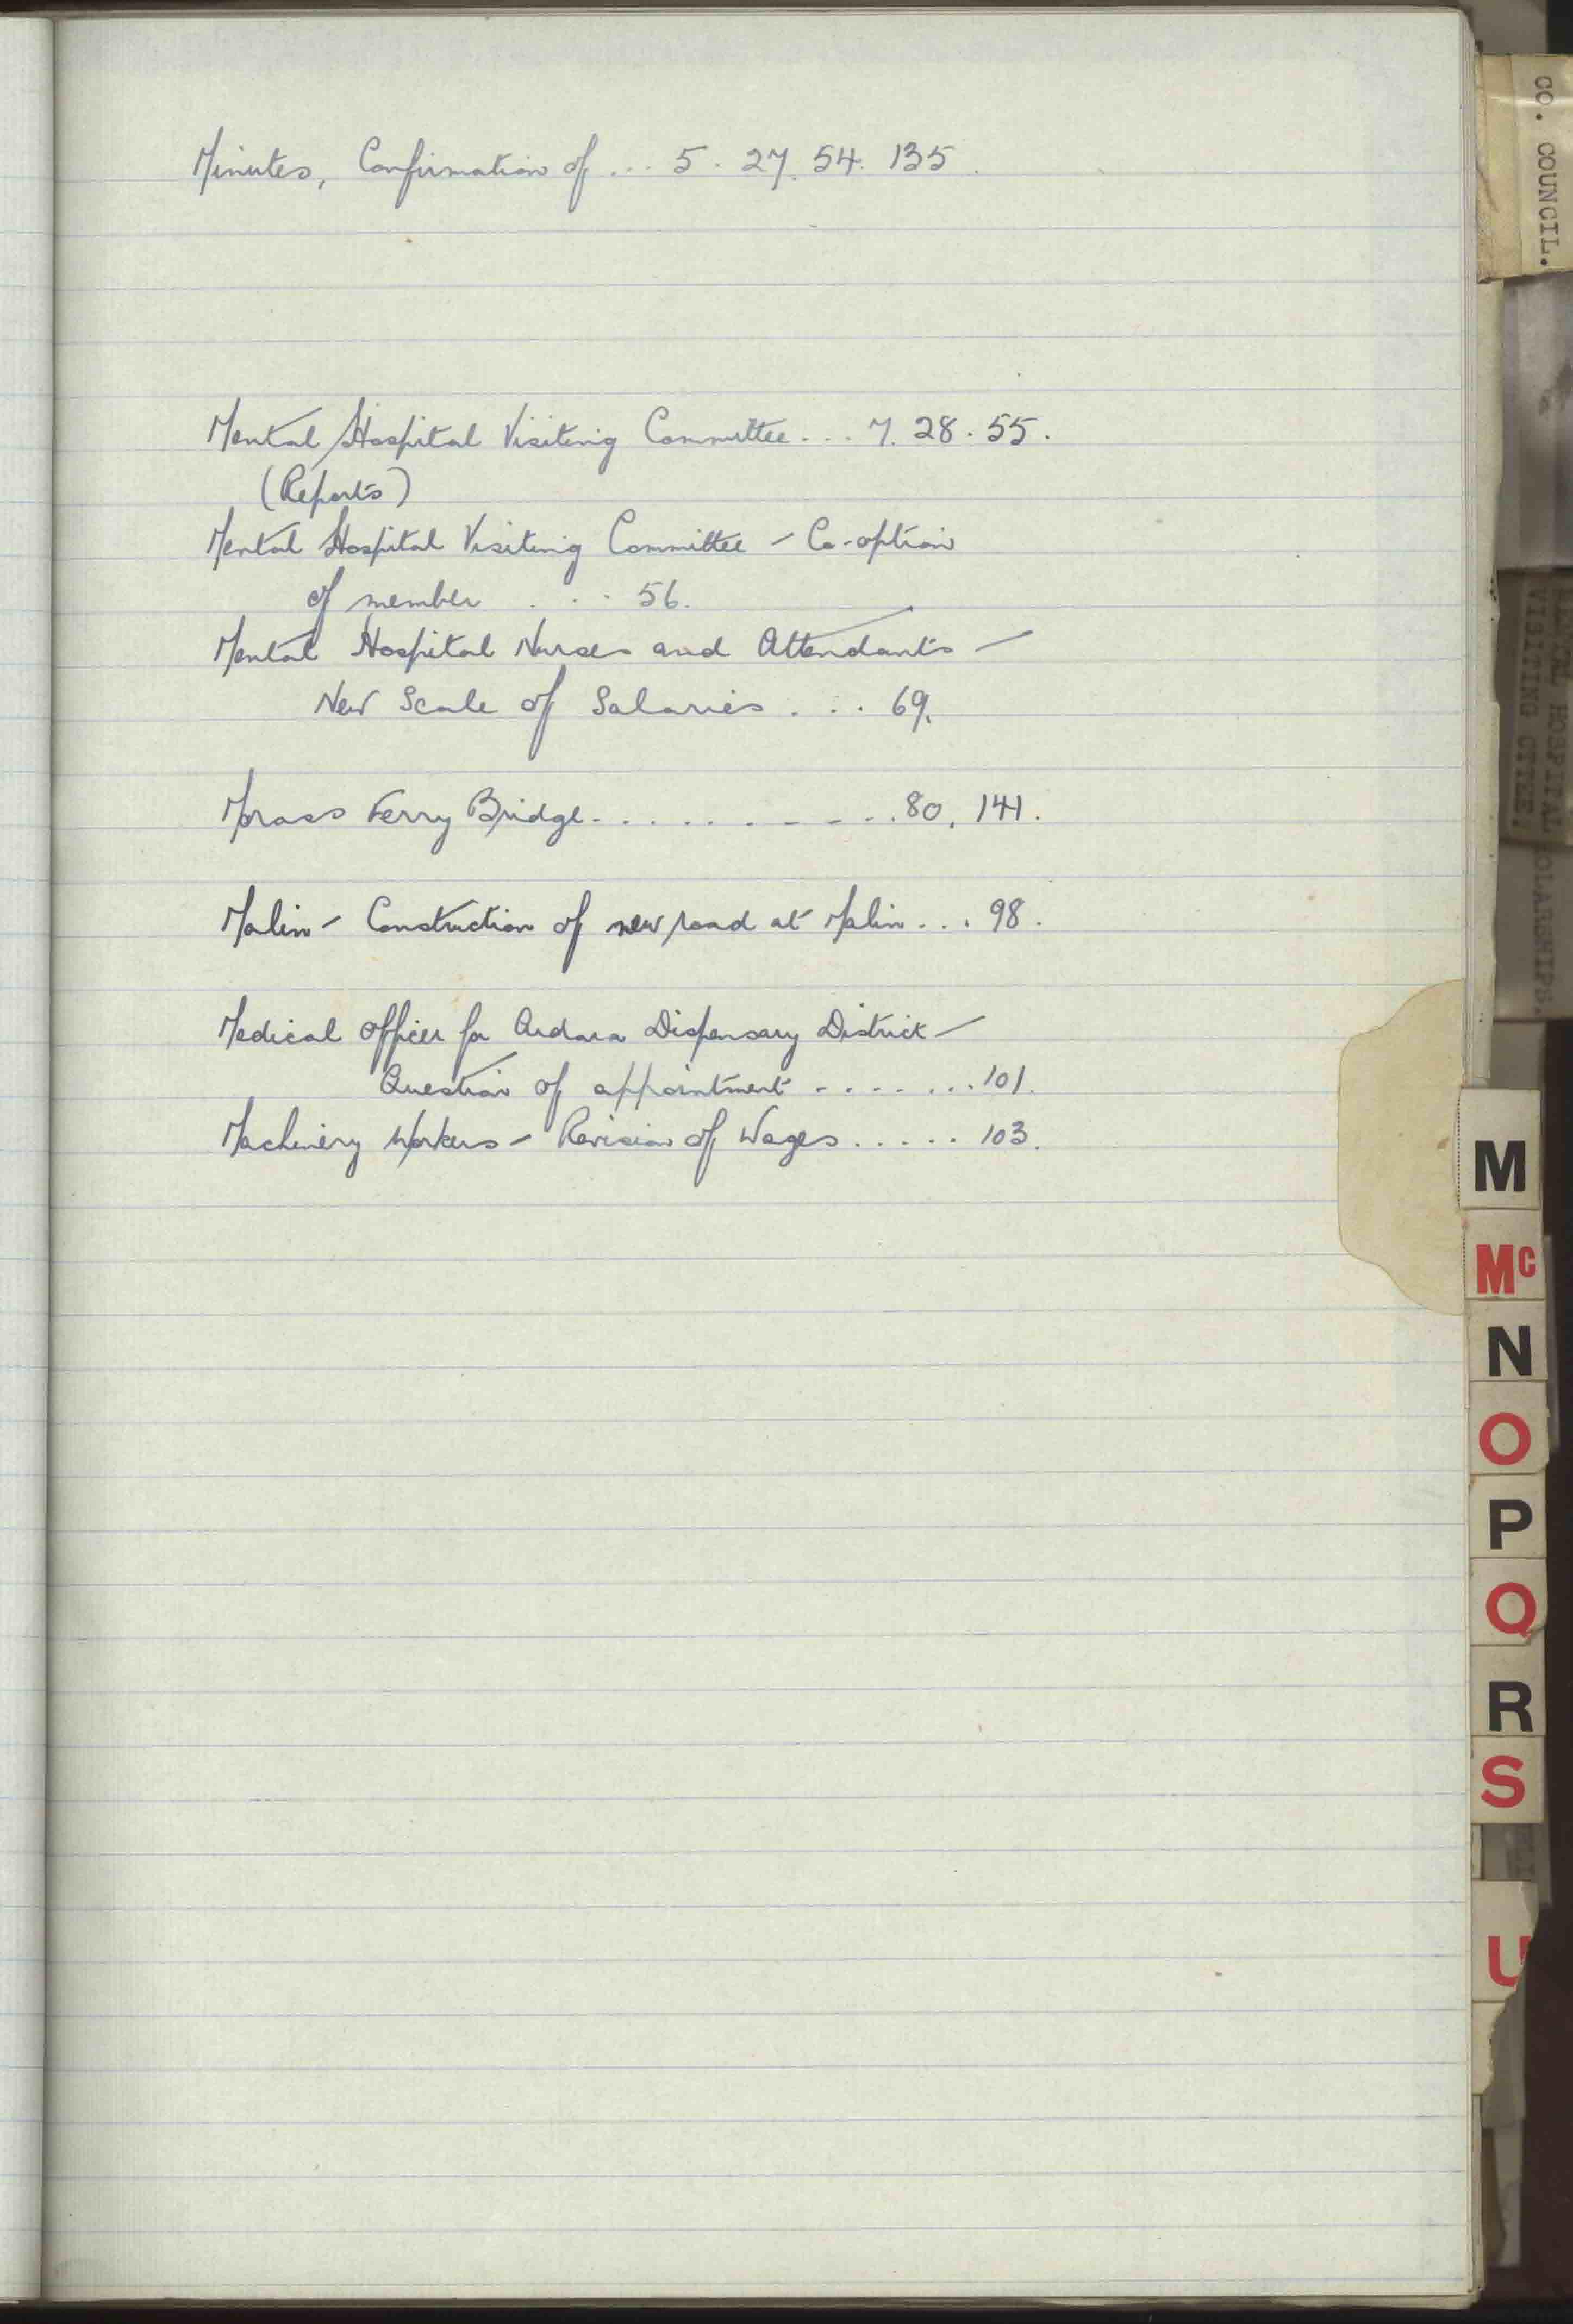 Minutes, Confirmation of ... 5. 27. 54. 135.
Mental Hospital Visiting Committee ... 7. 28. 55.
(Reports)
Mental Hospital Visiting Committee – Co-option
of member . . . 56.
Mental Hospital Nurses and Attendants –
New Scale of Salaries . . . 69.
Morass Ferry Bridge . . . . . . . . . . . 80, 141.
Malin – Construction of new road at Malin . . . 98.
Medical Officer for Ardara Dispensary District –
Question of appointment . . . . . . . 101.
Machinery Workers – Revision of Wages . . . . . 103.
CO. COUNCIL.
HOSPITAL
VISITING CTTEE.
M
Mc
N
O
P
Q
R
S
U